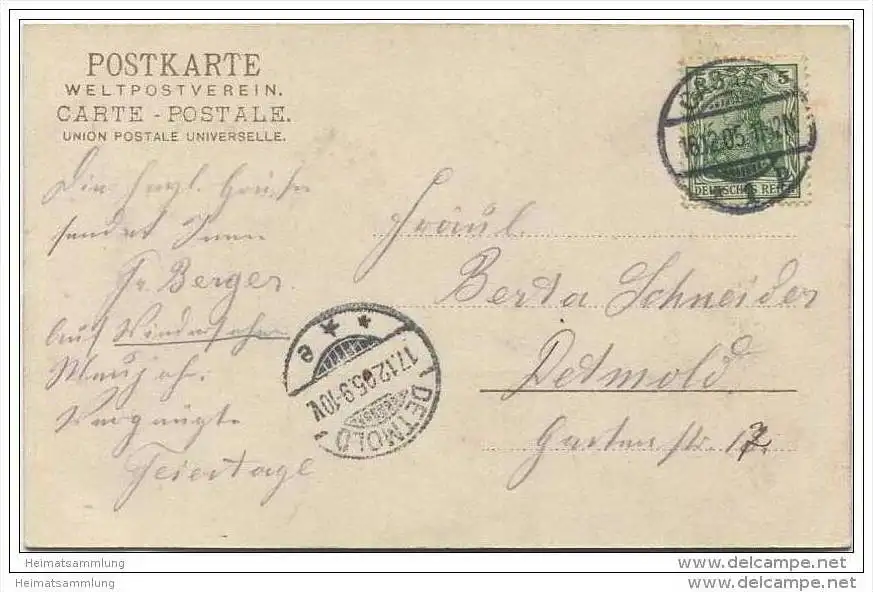 POSTKARTE
WELTPOSTVEREIN.
CARTE - POSTALE.
UNION POSTALE UNIVERSELLE.
CASSEL
16.12.05. 11-12N
1
5
DEUTSCHES REICH
Die
sendet Ihnen
Fr. Berger
Auf Wiedersehen
Vergnügte
Feiertage
Fräul.
Berta Schneider
Detmold
Gartenstr. 17.
DETMOLD
17.12.05.9-10V.
* * e
Heimatsammlung
www.delcampe.net
Heimatsammlung
www.delcampe.net